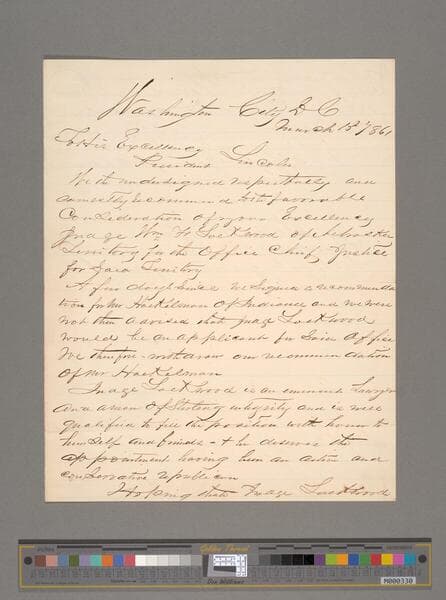 Washington City D C
March 13th 1861
To His Excellency
President Lincoln
We the undersigned respectfully and
earnestly recommend to the favorable
Consideration of your Excellency
Judge Wm F Lockwood of Nebraska
Territory for the Office Chief Justice
for said Territory
A few days since we signed a recommenda
tion for Mr Hackelman of Indiana and we were
not then advised that Judge Lockwood
would be an applicant for said office
We therefore withdraw our recommendation
of Mr Hackelman
Judge Lockwood is an eminent Lawyer
and a man of Sterling integrity and is well
qualified to fill the position with honor to
himself and friends - & he deserves the
appointment having been an active and
conservative republican
Hoping that Judge Lockwood
Golden Thread
Don Williams
M000330